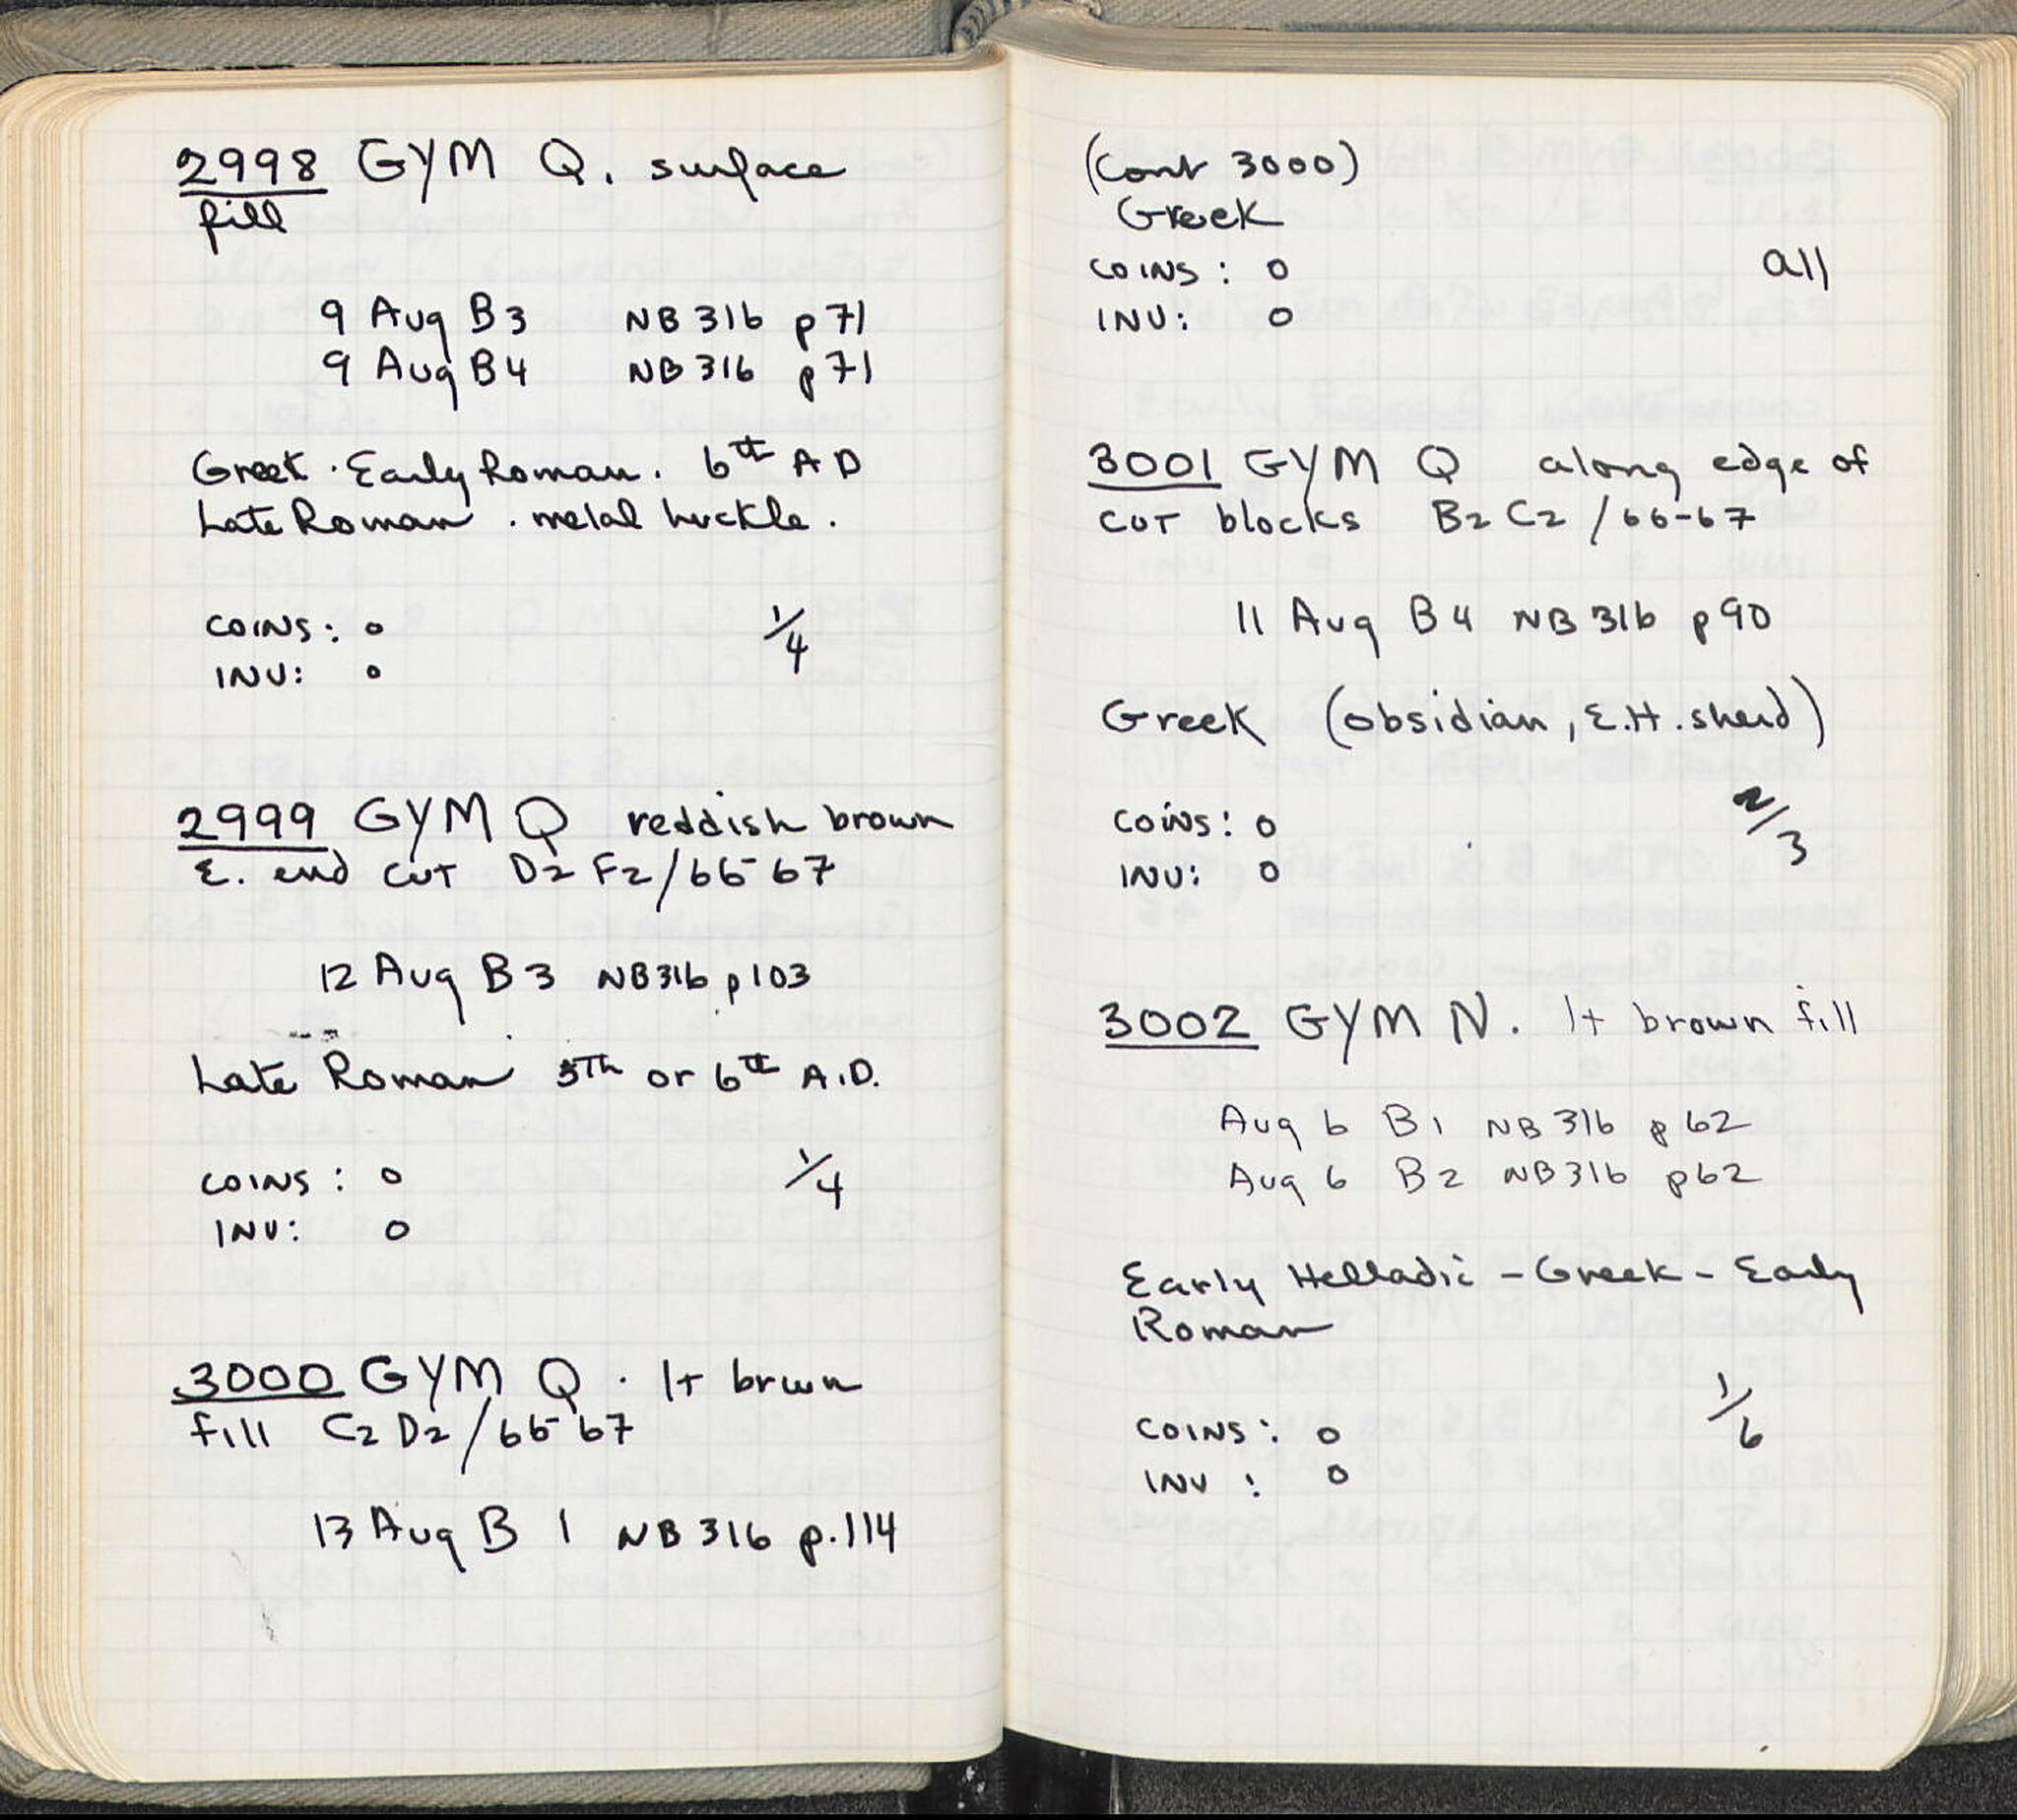 2998 GYM Q. surface
fill
9 Aug B3 NB 316 p 71
9 Aug B4 NB 316 p 71
Greek · Early Roman. 6th A D
Late Roman . metal buckle.
COINS: 0 1/4
INV: 0
2999 GYM Q reddish brown
E. end cut D2 F2/66-67
12 Aug B3 NB316 p103
Late Roman 5th or 6th A.D.
COINS: 0 1/4
INV: 0
3000 GYM Q · lt brwn
fill C2 D2/66-67
13 Aug B 1 NB 316 p.114
(Cont 3000)
Greek
COINS: 0 all
INV: 0
3001 GYM Q along edge of
cut blocks B2 C2 /66-67
11 Aug B4 NB 316 p90
Greek (obsidian, E.H. sherd)
COINS: 0 2/3
INV: 0
3002 GYM N. lt brown fill
Aug 6 B1 NB 316 p 62
Aug 6 B2 NB316 p62
Early Helladic - Greek - Early
Roman
COINS: 0 1/6
INV: 0